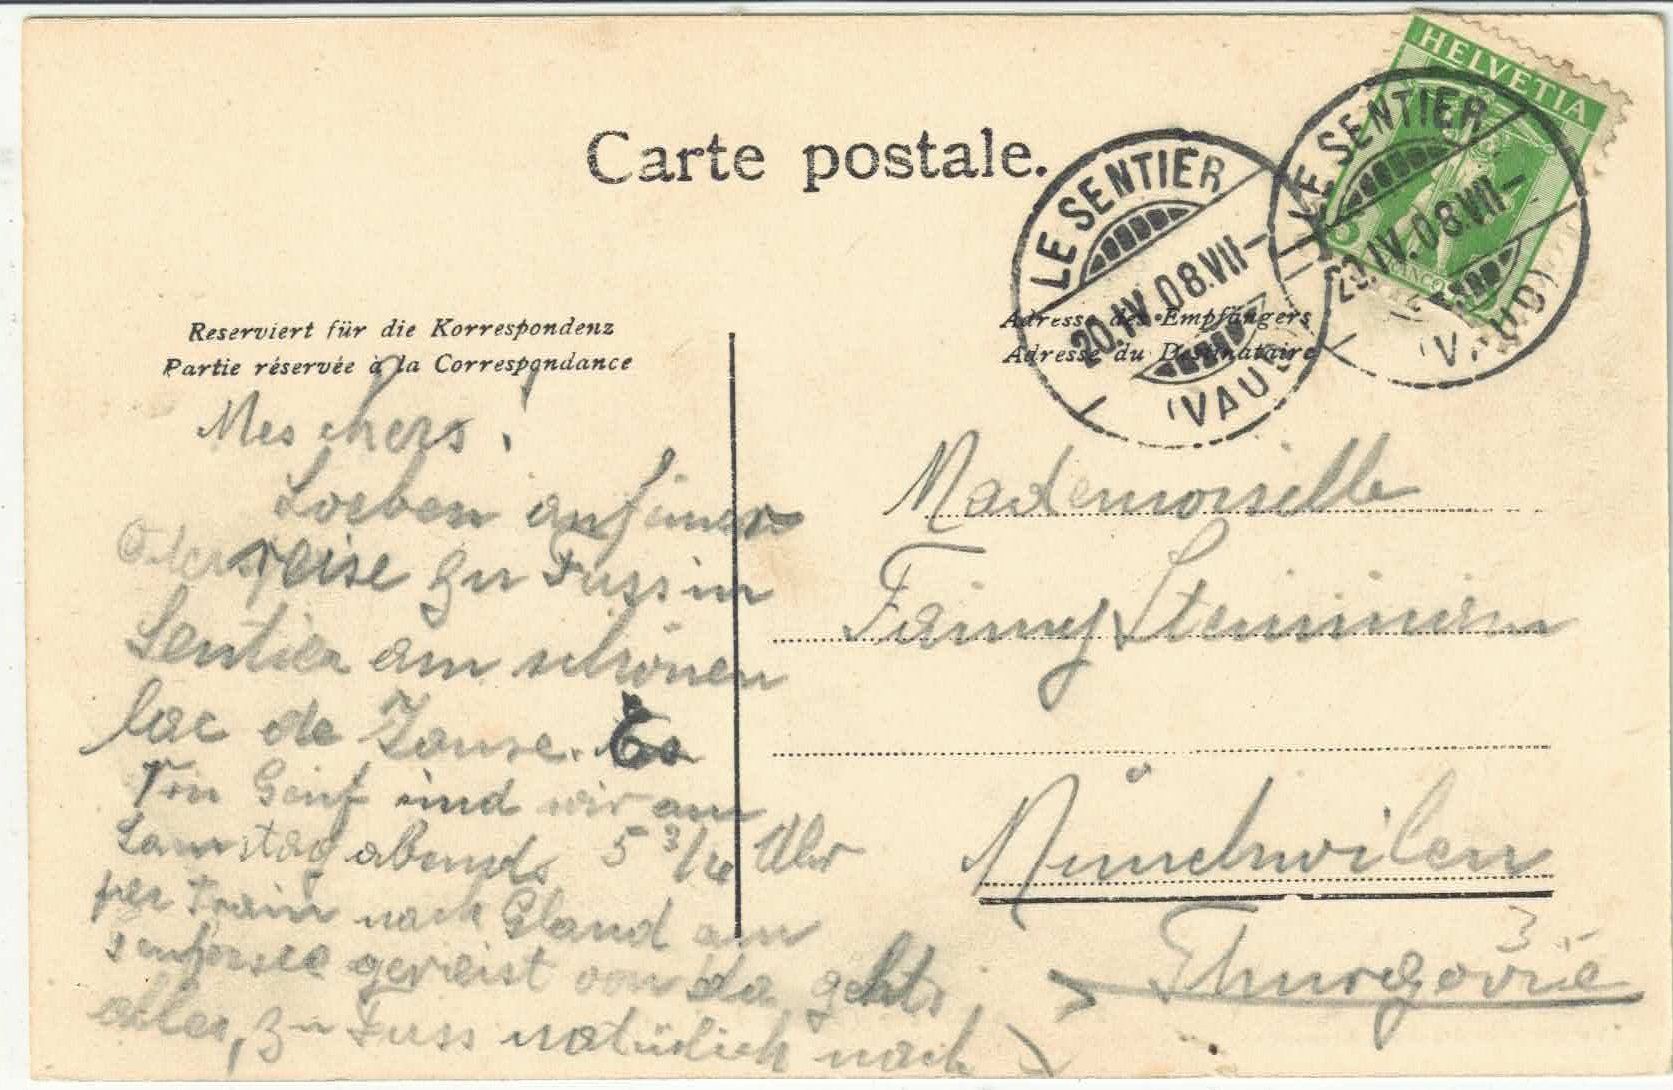 Carte postale.
HELVETIA
LE SENTIER
20.IV.08.VII–
(VAUD)
LE SENTIER
20.IV.08.VII–
(VAUD)
Reserviert für die Korrespondenz
Partie réservée à la Correspondance
Adresse des Empfängers
Adresse du Destinataire
Mes chers!
Soeben auf einer
Osterreise zu Fuss in
Sentier am schönen
lac de Joux.
Von Genf sind wir am
Samstag abends 5 3/4 Uhr
per Train nach Gland am
Genfersee gereist von da gehts
alles, zu Fuss natürlich nach
Mademoiselle
Fanny Steinmann
Münchwilen
Thurgovie